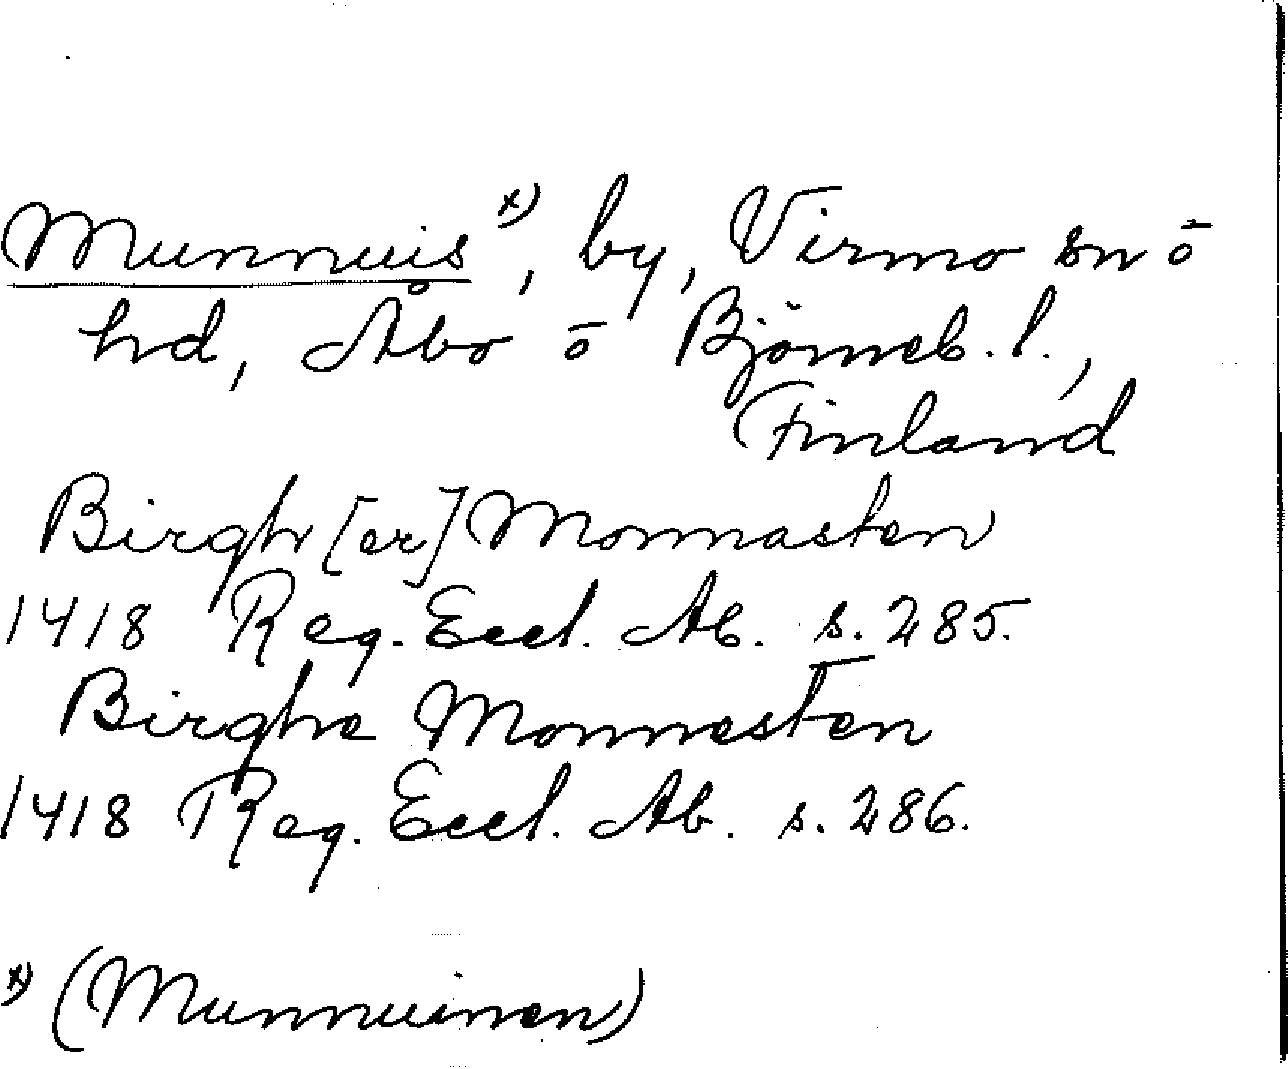 Munnuis x), by, Virmo sn ō
hd, Åbo ō Björneb. l.,
Finland
Birgh [er] Monnasten
1418 Reg. Eccl. Ab. s. 285.
Birghe Monnesten
1418 Reg. Eccl. Ab. s. 286.
x) (Munnuinen)